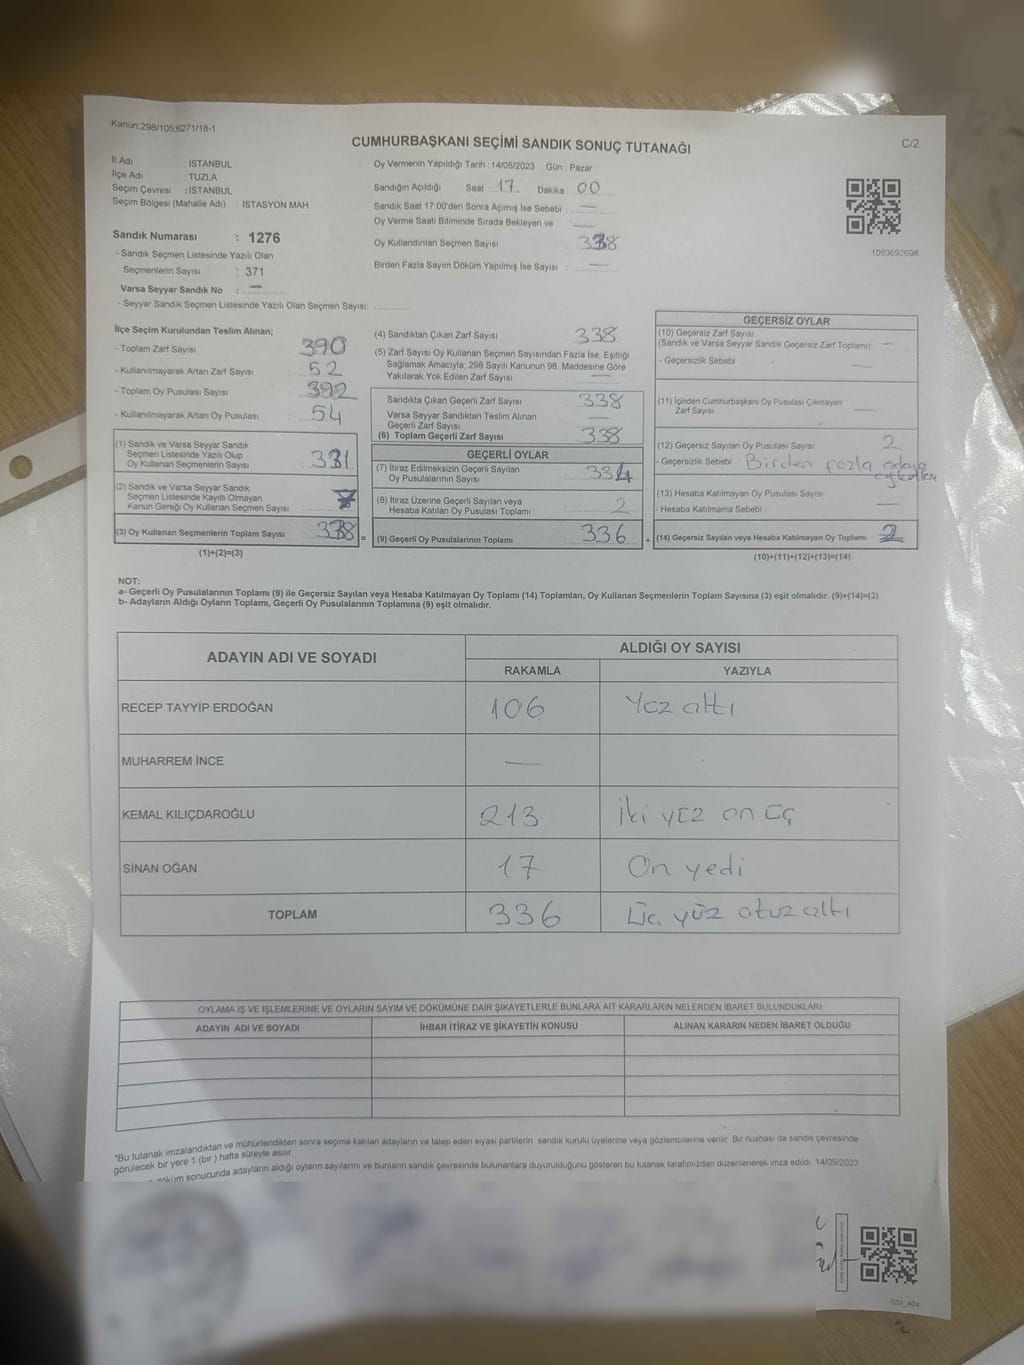 Kanun:298/105;6271/18-1
CUMHURBAŞKANI SEÇİMİ SANDIK SONUÇ TUTANAĞI
C/2
İl Adı : İSTANBUL
İlçe Adı : TUZLA
Seçim Çevresi : İSTANBUL
Seçim Bölgesi (Mahalle Adı) : İSTASYON MAH
Sandık Numarası : 1276
- Sandık Seçmen Listesinde Yazılı Olan
Seçmenlerin Sayısı : 371
Varsa Seyyar Sandık No : —
- Seyyar Sandık Seçmen Listesinde Yazılı Olan Seçmen Sayısı:
Oy Vermenin Yapıldığı Tarih : 14/05/2023 Gün : Pazar
Sandığın Açıldığı Saat : 17 Dakika : 00
Sandık Saat 17:00'den Sonra Açımış İse Sebebi : —
Oy Verme Saati Bitiminde Sırada Bekleyen ve : —
Oy Kullandırılan Seçmen Sayısı : 338
Birden Fazla Sayım Döküm Yapılmış İse Sayısı : —
1093692698
İlçe Seçim Kurulundan Teslim Alınan;
- Toplam Zarf Sayısı : 390
- Kullanılmayarak Artan Zarf Sayısı : 52
- Toplam Oy Pusulası Sayısı : 392
- Kullanılmayarak Artan Oy Pusulası : 54
(1) Sandık ve Varsa Seyyar Sandık
Seçmen Listesinde Yazılı Olup
Oy Kullanan Seçmenlerin Sayısı : 331
(2) Sandık ve Varsa Seyyar Sandık
Seçmen Listesinde Kayıtlı Olmayan
Kanun Gereği Oy Kullanan Seçmen Sayısı : 7
(3) Oy Kullanan Seçmenlerin Toplam Sayısı : 338
(1)+(2)=(3)
(4) Sandıktan Çıkan Zarf Sayısı : 338
(5) Zarf Sayısı Oy Kullanan Seçmen Sayısından Fazla İse, Eşitliği
Sağlamak Amacıyla, 298 Sayılı Kanunun 98. Maddesine Göre
Yakılarak Yok Edilen Zarf Sayısı : —
Sandıkta Çıkan Geçerli Zarf Sayısı : 338
Varsa Seyyar Sandıktan Teslim Alınan
Geçerli Zarf Sayısı : —
(6) Toplam Geçerli Zarf Sayısı : 338
GEÇERLİ OYLAR
(7) İtiraz Edilmeksizin Geçerli Sayılan
Oy Pusulalarının Sayısı : 334
(8) İtiraz Üzerine Geçerli Sayılan veya
Hesaba Katılan Oy Pusulası Toplamı : 2
= (9) Geçerli Oy Pusulalarının Toplamı : 336
GEÇERSİZ OYLAR
(10) Geçersiz Zarf Sayısı
(Sandık ve Varsa Seyyar Sandık Geçersiz Zarf Toplamı) : —
- Geçersizlik Sebebi : —
(11) İçinden Cumhurbaşkanı Oy Pusulası Çıkmayan
Zarf Sayısı : —
(12) Geçersiz Sayılan Oy Pusulası Sayısı : 2
- Geçersizlik Sebebi : Birden fazla adaya
(13) Hesaba Katılmayan Oy Pusulası Sayısı
- Hesaba Katılmama Sebebi : —
+ (14) Geçersiz Sayılan veya Hesaba Katılmayan Oy Toplamı : 2
(10)+(11)+(12)+(13)=(14)
NOT:
a- Geçerli Oy Pusulalarının Toplamı (9) ile Geçersiz Sayılan veya Hesaba Katılmayan Oy Toplamı (14) Toplamları, Oy Kullanan Seçmenlerin Toplam Sayısına (3) eşit olmalıdır. (9)+(14)=(3)
b- Adayların Aldığı Oyların Toplamı, Geçerli Oy Pusulalarının Toplamına (9) eşit olmalıdır.
ADAYIN ADI VE SOYADI
ALDIĞI OY SAYISI
RAKAMLA YAZIYLA
RECEP TAYYİP ERDOĞAN 106 Yüz altı
MUHARREM İNCE —
KEMAL KILIÇDAROĞLU 213 İki yüz on üç
SİNAN OĞAN 17 On yedi
TOPLAM 336 Üç yüz otuz altı
OYLAMA İŞ VE İŞLEMLERİNE VE OYLARIN SAYIM VE DÖKÜMÜNE DAİR ŞİKAYETLERLE BUNLARA AİT KARARLARIN NELERDEN İBARET BULUNDUKLARI
ADAYIN ADI VE SOYADI İHBAR İTİRAZ VE ŞİKAYETİN KONUSU ALINAN KARARIN NEDEN İBARET OLDUĞU
*Bu tutanak imzalandıktan ve mühürlendikten sonra seçime katılan adayların ve talep eden siyasi partilerin sandık kurulu üyelerine veya gözlemcilerine verilir. Bir nüshası da sandık çevresinde
görülecek bir yere 1 (bir ) hafta süreyle asılır.
döküm sonucunda adayların aldığı oyların sayılarını ve bunların sandık çevresinde bulunanlara duyurulduğunu gösteren bu tutanak tarafımızdan düzenlenerek imza edildi. 14/05/2023
G01_404